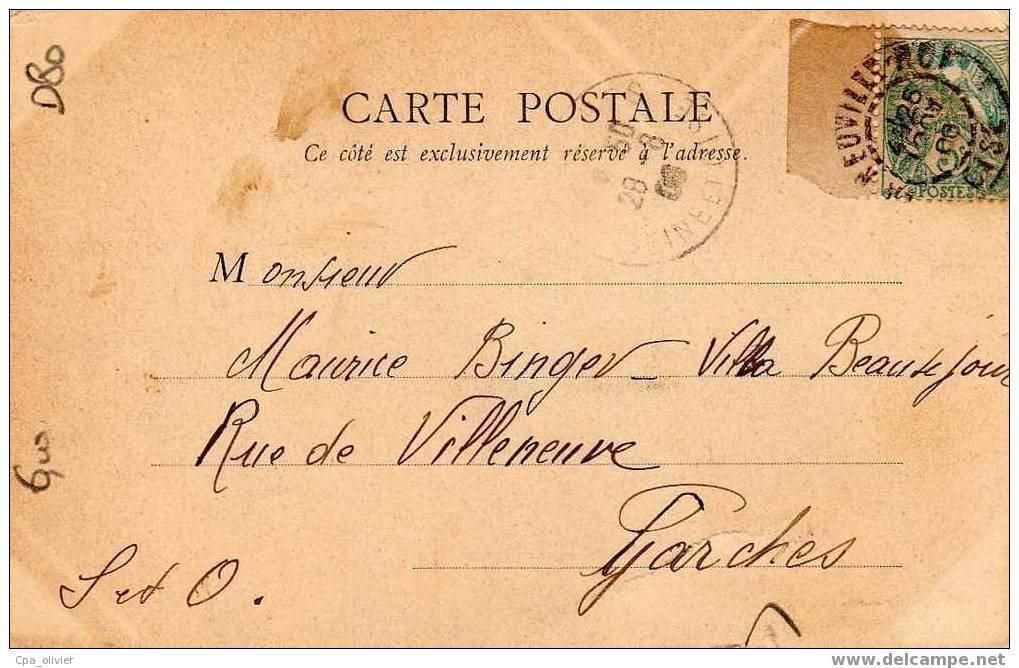 DBO
CARTE POSTALE
Ce côté est exclusivement réservé à l'adresse.
POSTES
28 -8
Monsieur
Maurice Binger - Villa Beauséjour
Rue de Villeneuve
Garches
S et O.
Cpa_olivier
www.delcampe.net